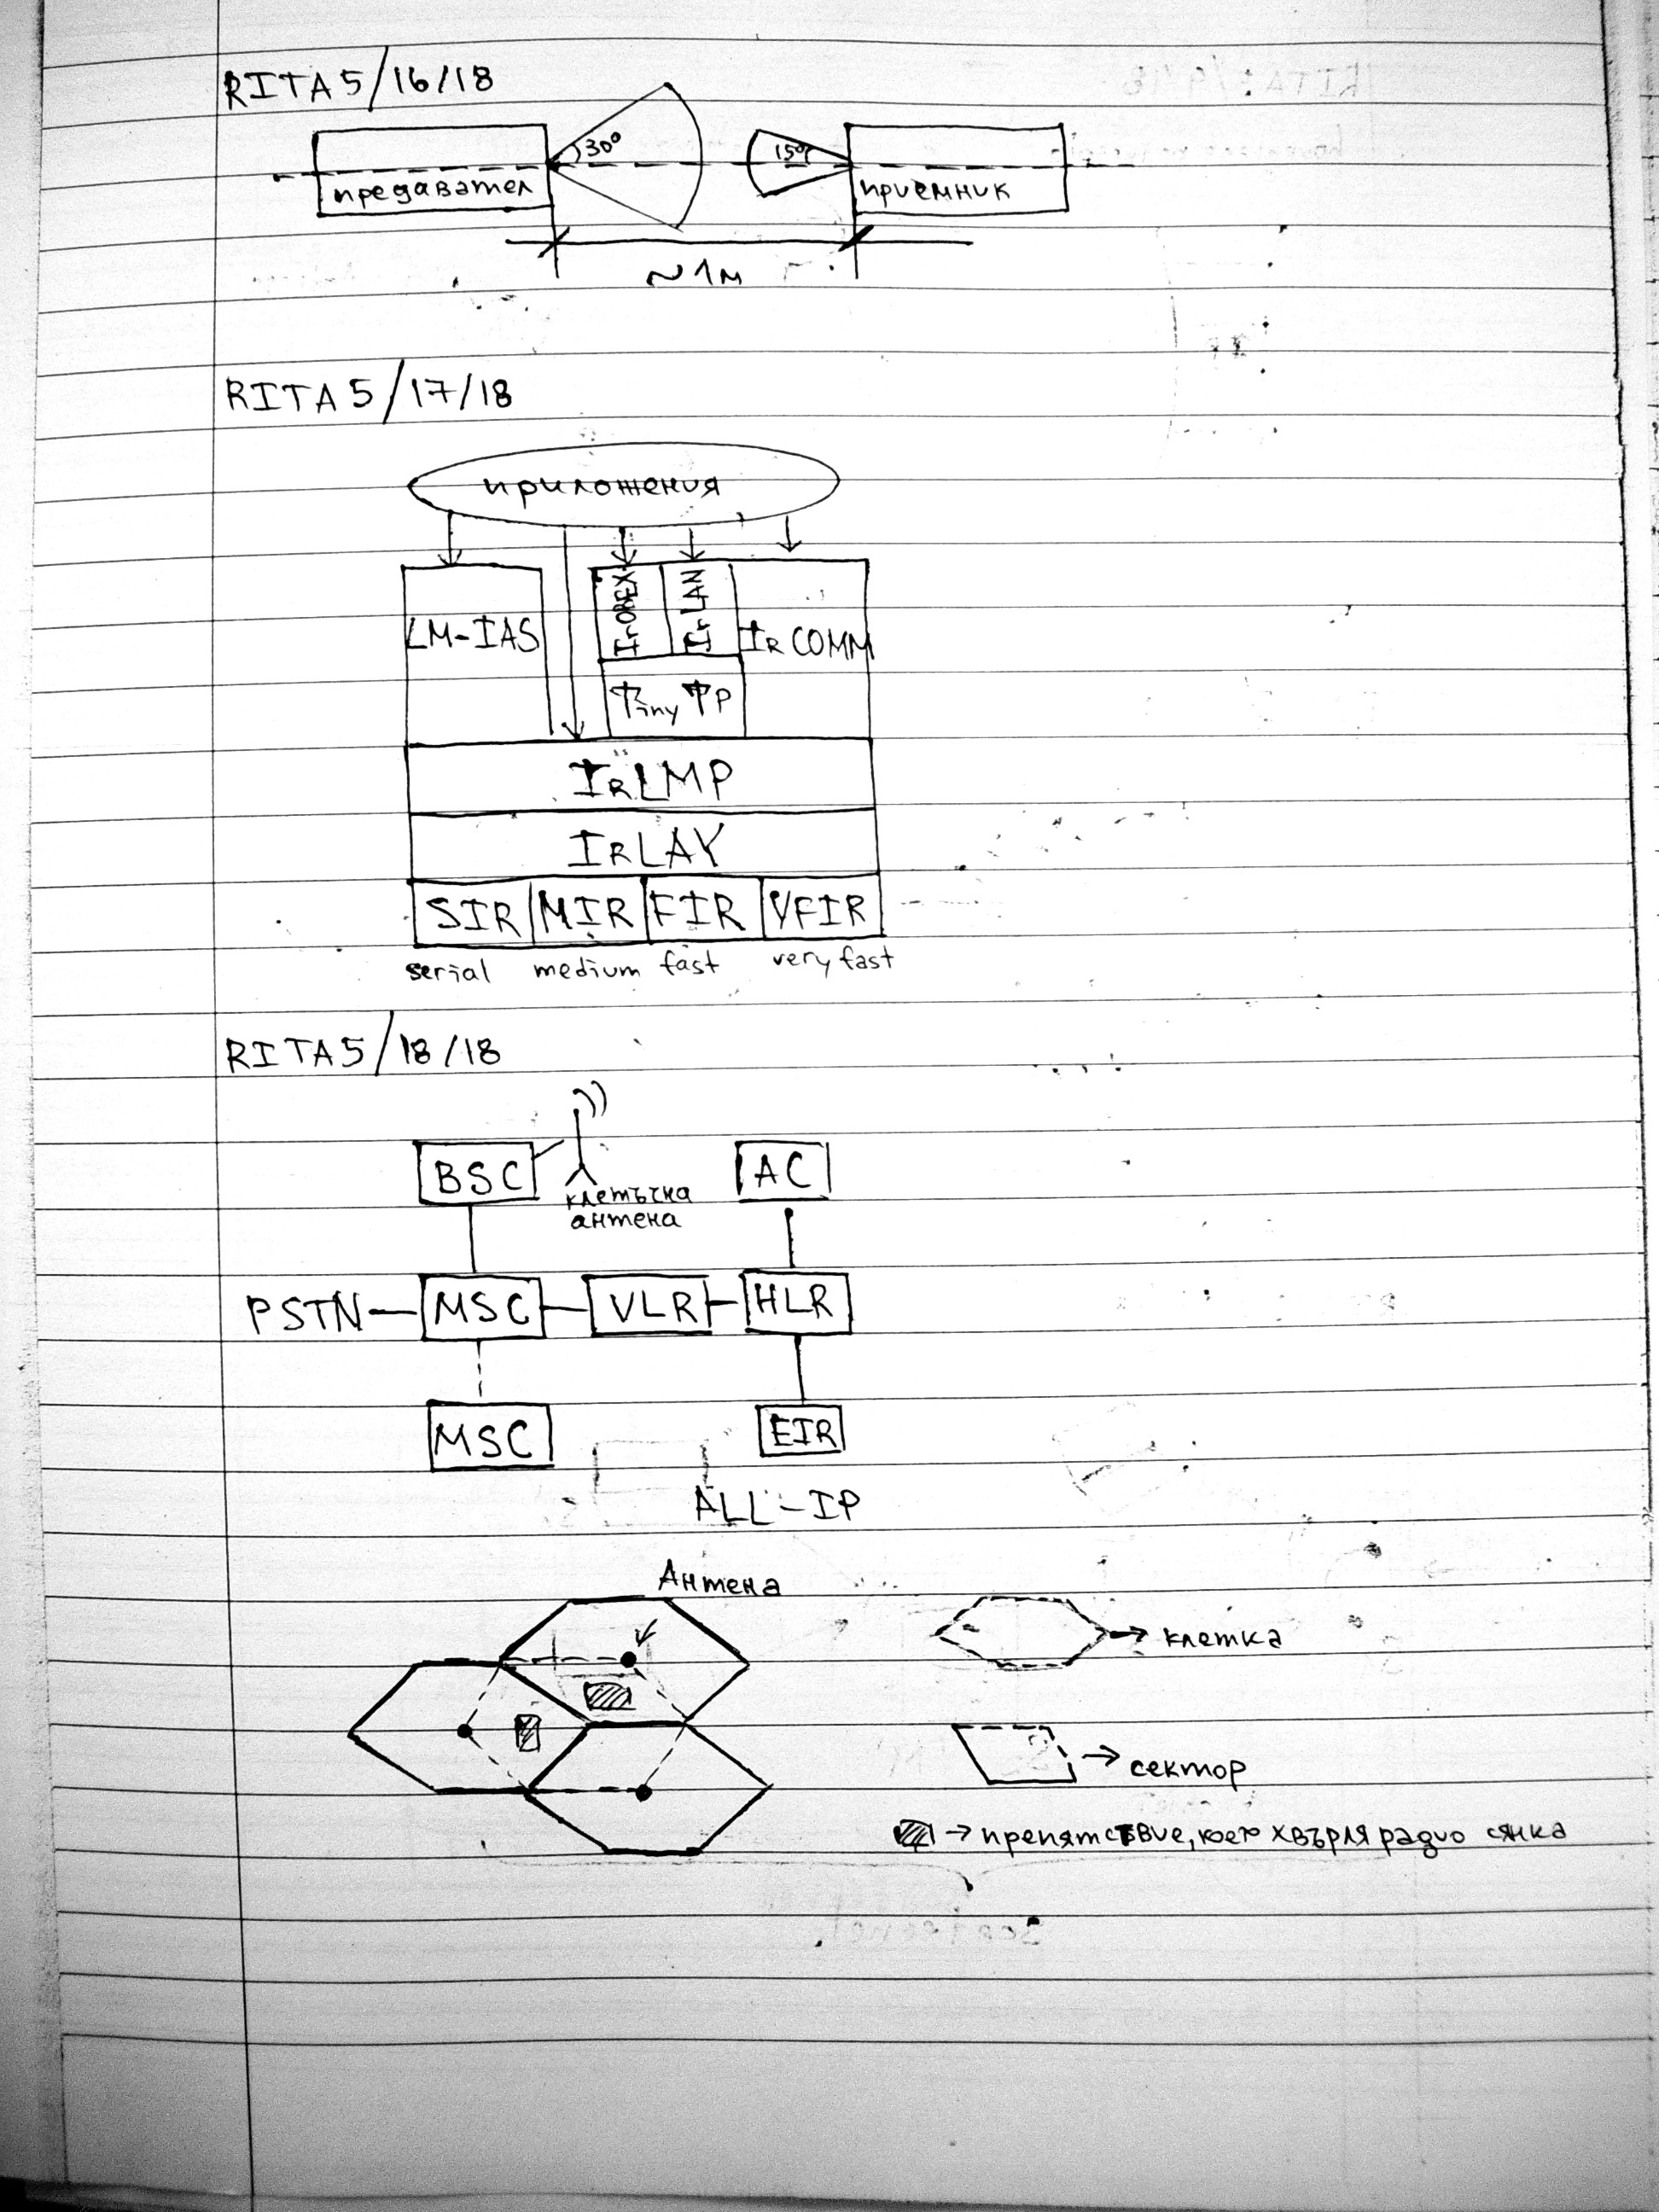 RITA 5/16/18
30° 15°
предавател приемник
~1м
RITA 5/17/18
приложения
LM-IAS IrOBEX IrLAN IRCOMM
Tiny TP
IRLMP
IRLAY
SIR MIR FIR VFIR
serial medium fast very fast
RITA 5/18/18
BSC AC
клетъчна
антена
PSTN MSC VLR HLR
MSC EIR
ALL-IP
Антена
клетка
сектор
препятствие, което хвърля радио сянка